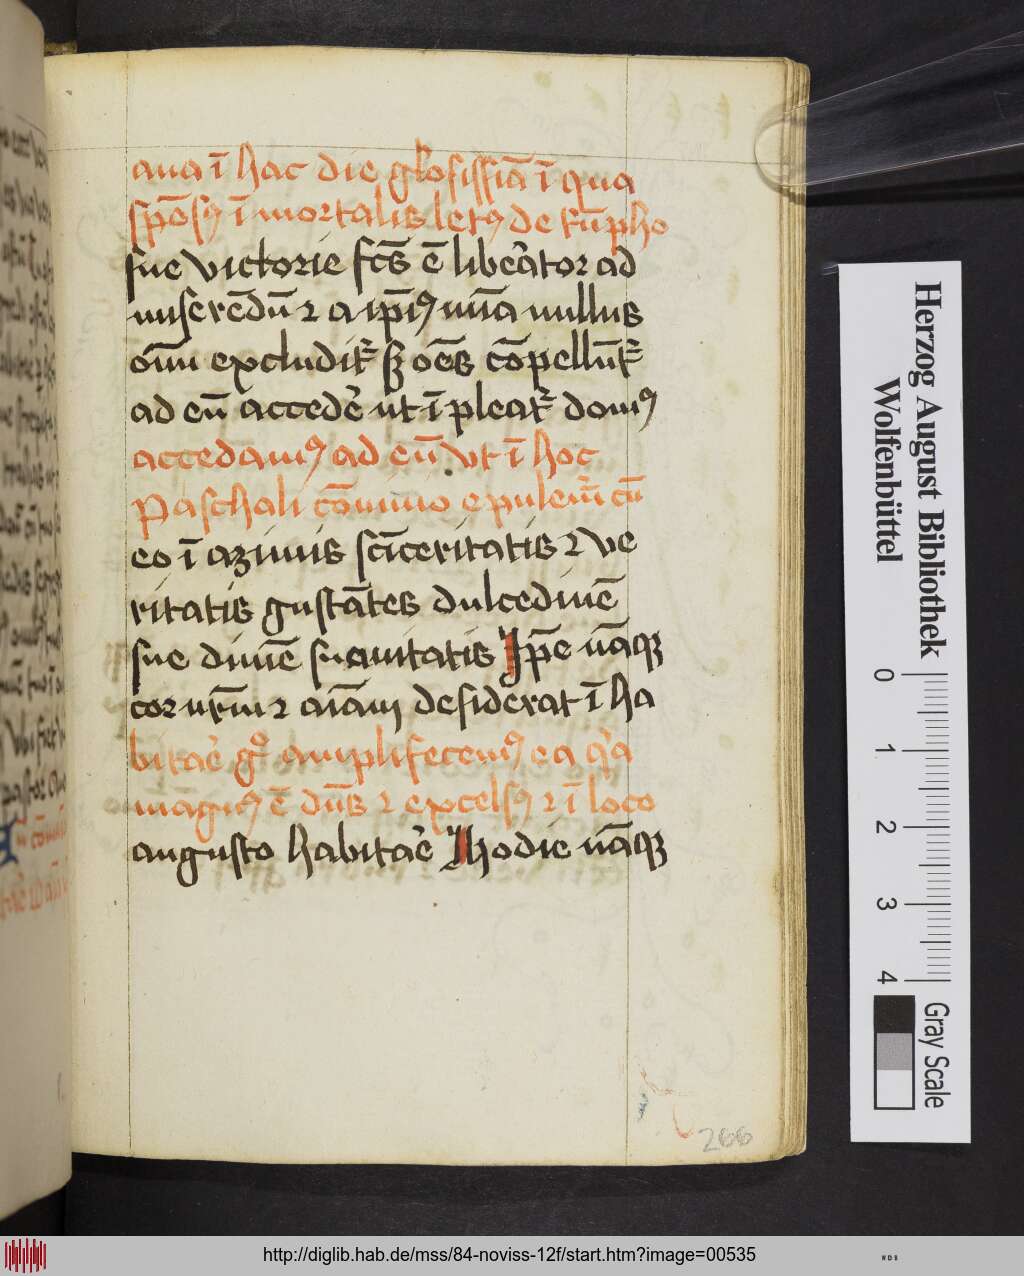 aua ī hac die gl̄osissīa ī qua
spōsꝯ ī mortalis letꝯ de tūpho
sue victorie fcs̄ ē libeꝛ̉ator ad
miserēdū ⁊ a ip̄iꝯ mīa nullus
om̄i excluditꝛ sꝫ oēs cōpellūtꝛ
ad eū accede᷑ ut ī pleatꝛ domꝯ
accedamꝯ ad eū vt ī hoc
Paschali cōuiuio epulem̄ cū
eo ī azimis scīceritatis ⁊ ve
ritatis gustātes dulcedinē
sue diuīe suauitatis Ip̄e nāqꝫ
cor nr̄m ⁊ aīam desiderat ī ha
bitaē gͦ amplificemꝯ ea qꝛa
magnꝯ ē dn̄s ⁊ excelsꝯ ⁊ ī loco
augusto habitaē Hodie nāqꝫ
266
Herzog August Bibliothek
Wolfenbüttel
0 1 2 3 4
Gray Scale
http://diglib.hab.de/mss/84-noviss-12f/start.htm?image=00535